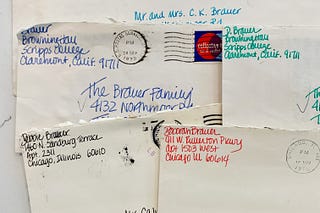 Mr. and Mrs. C. K. Brauer
Brauer
Browning Hall
Scripps College
Claremont, Calif. 91711
D. Brauer
Browning Hall
Scripps College
Claremont, Calif. 91711
The Brauer Family
4132 Northmoor
The Br
413
Debbie Brauer
1460 N. Sandburg Terrace
Apt. 2311
Chicago, Illinois 60610
Deborah Brauer
W. Fullerton Pkwy
Apt 1503 West
Chicago Ill 60614